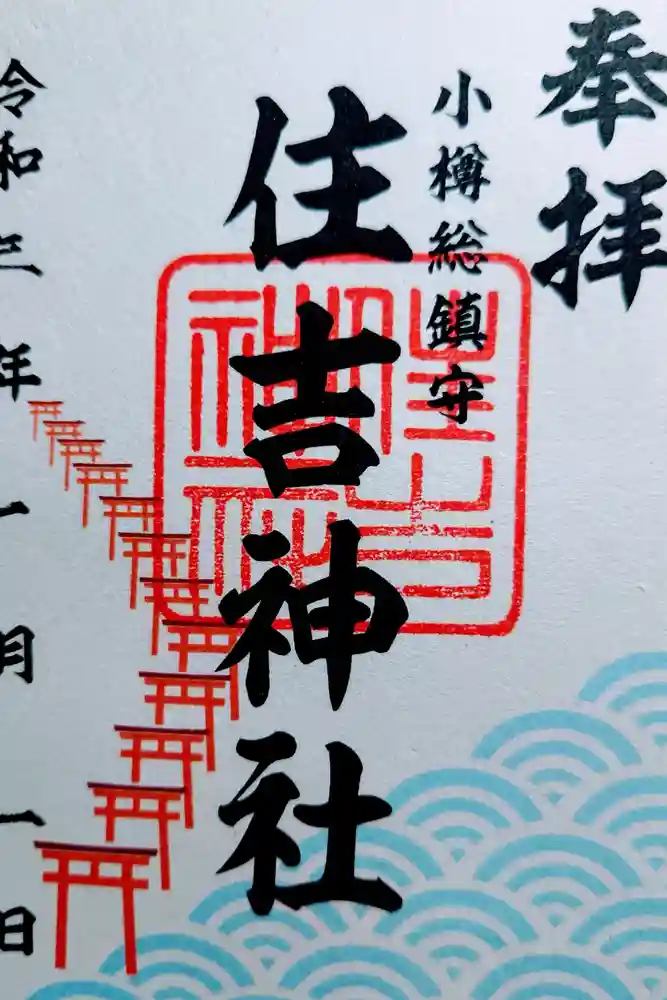 奉拝
小樽総鎮守
住吉神社
令和三年一月一日
住吉神社